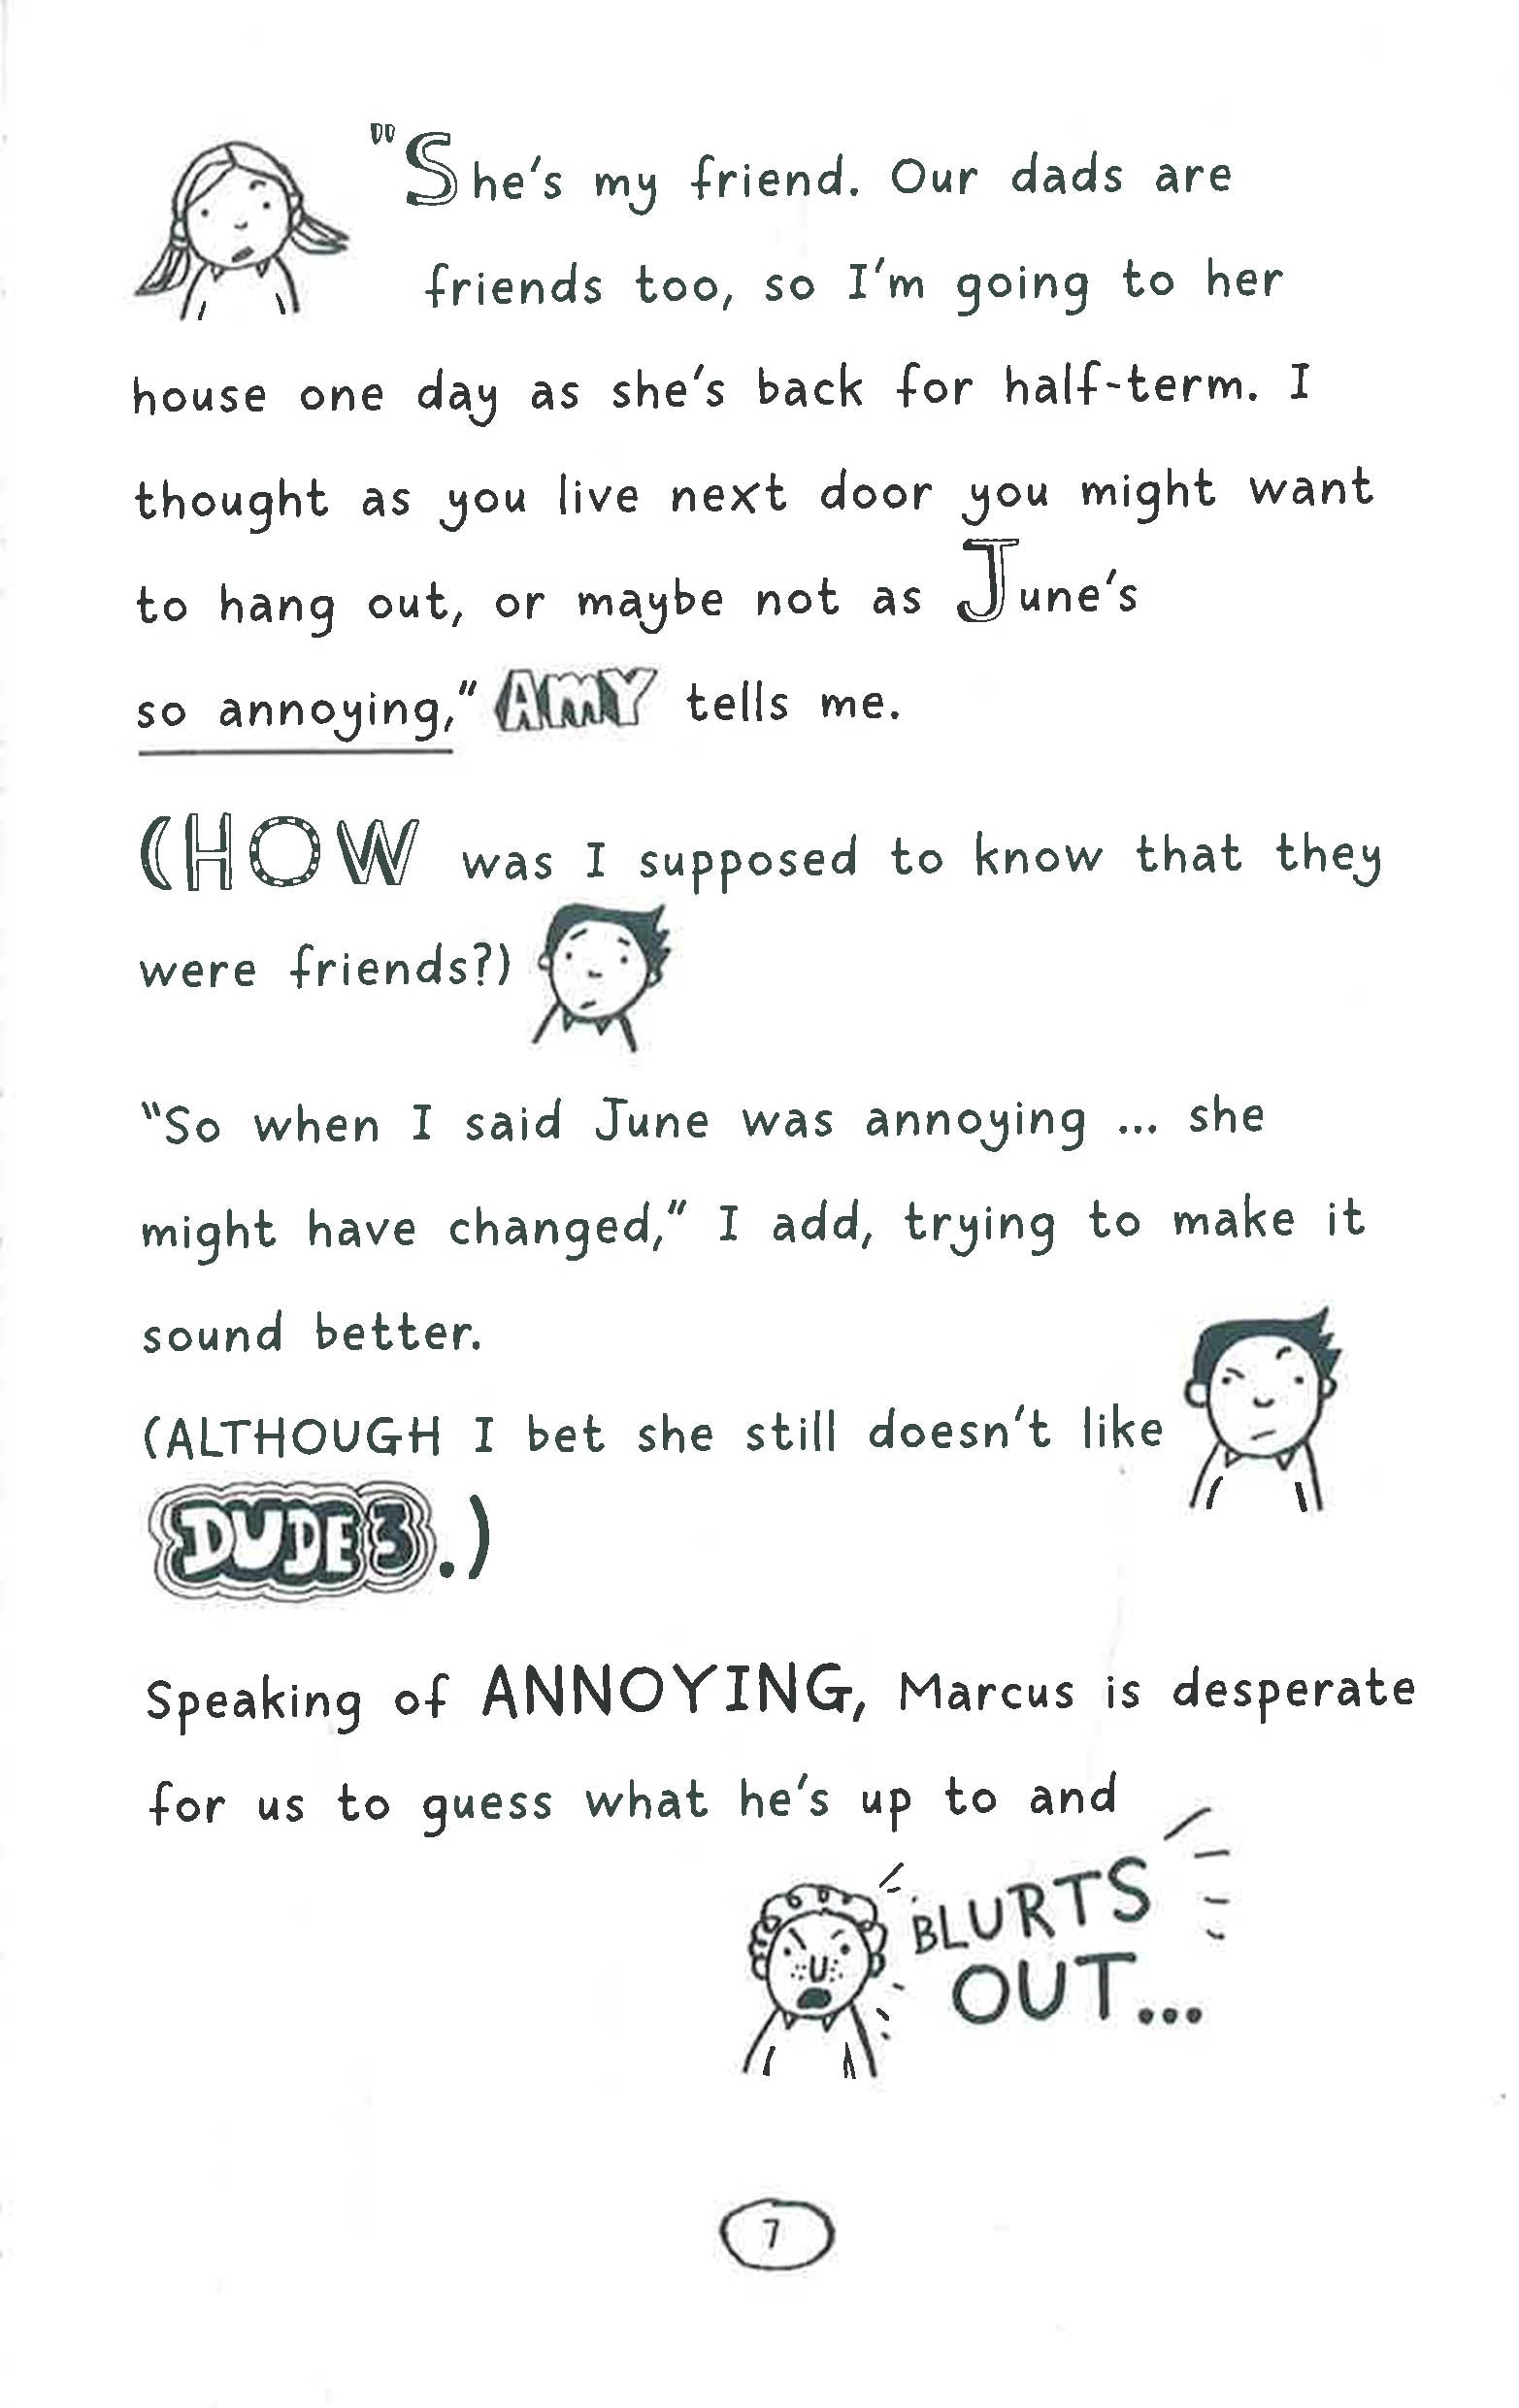 "She's my friend. Our dads are
friends too, so I'm going to her
house one day as she's back for half-term. I
thought as you live next door you might want
to hang out, or maybe not as June's
so annoying," AMY tells me.
(HOW was I supposed to know that they
were friends?)
"So when I said June was annoying ... she
might have changed," I add, trying to make it
sound better.
(ALTHOUGH I bet she still doesn't like
DUDE3.)
Speaking of ANNOYING, Marcus is desperate
for us to guess what he's up to and
BLURTS
OUT...
7